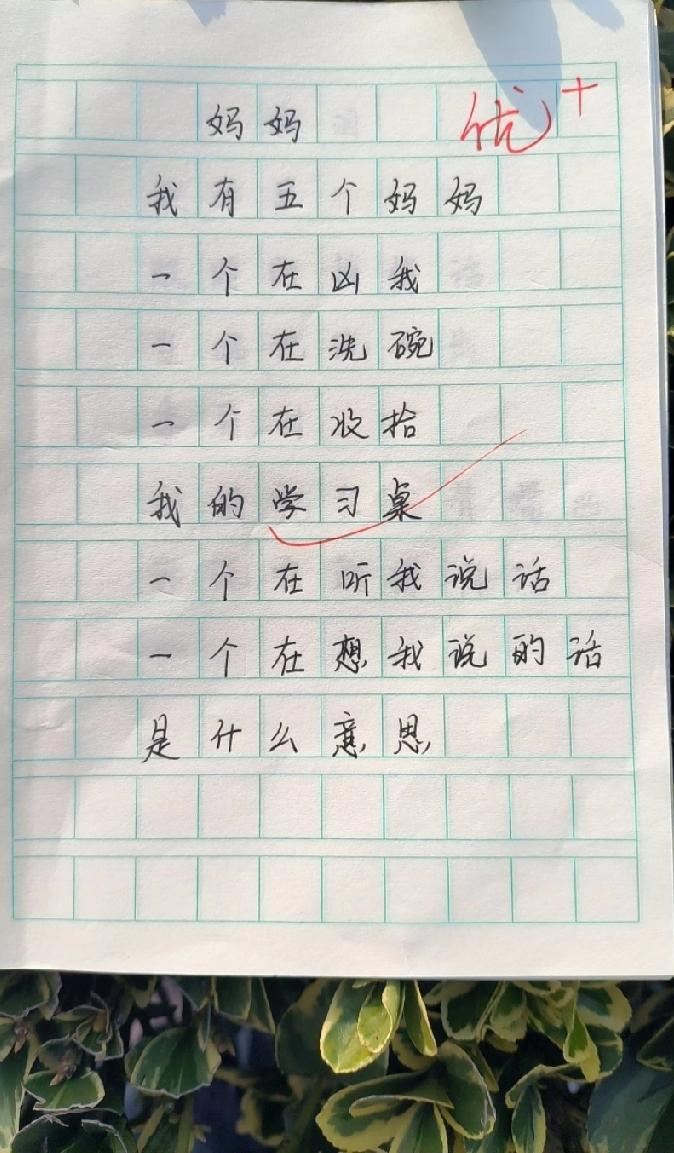 妈妈 优+
我有五个妈妈
一个在凶我
一个在洗碗
一个在收拾
我的学习桌
一个在听我说话
一个在想我说的话
是什么意思